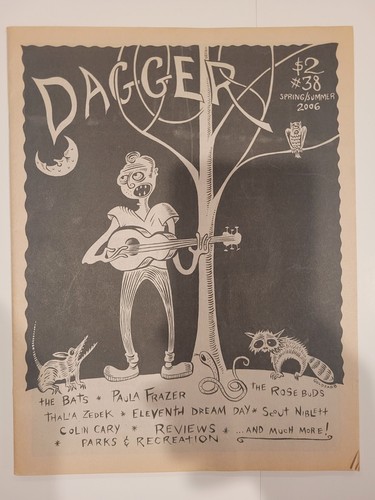 DAGGER
$2
#38
SPRING/SUMMER
2006
THE BATS * PAULA FRAZER THE ROSEBUDS
THALIA ZEDEK * ELEVENTH DREAM DAY * SCOUT NIBLETT
COLIN CARY * REVIEWS * ...AND MUCH MORE!
* PARKS & RECREATION